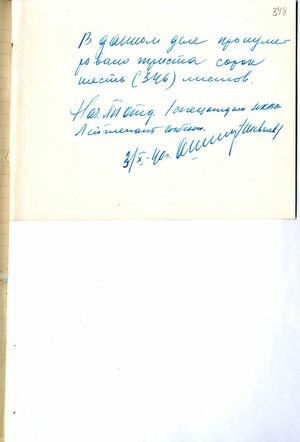 348
В данном деле пронуме-
ровано триста сорок
шесть (346) листов.
Нач. 1 спецотдела
Лейтенант госбезоп.
3/X-40г.